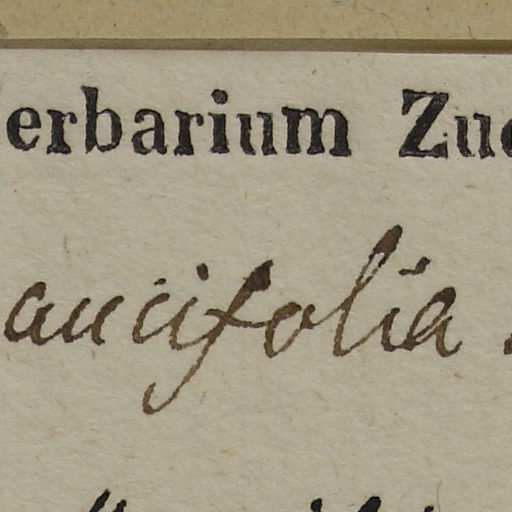 erbarium Zuc
aucifolia